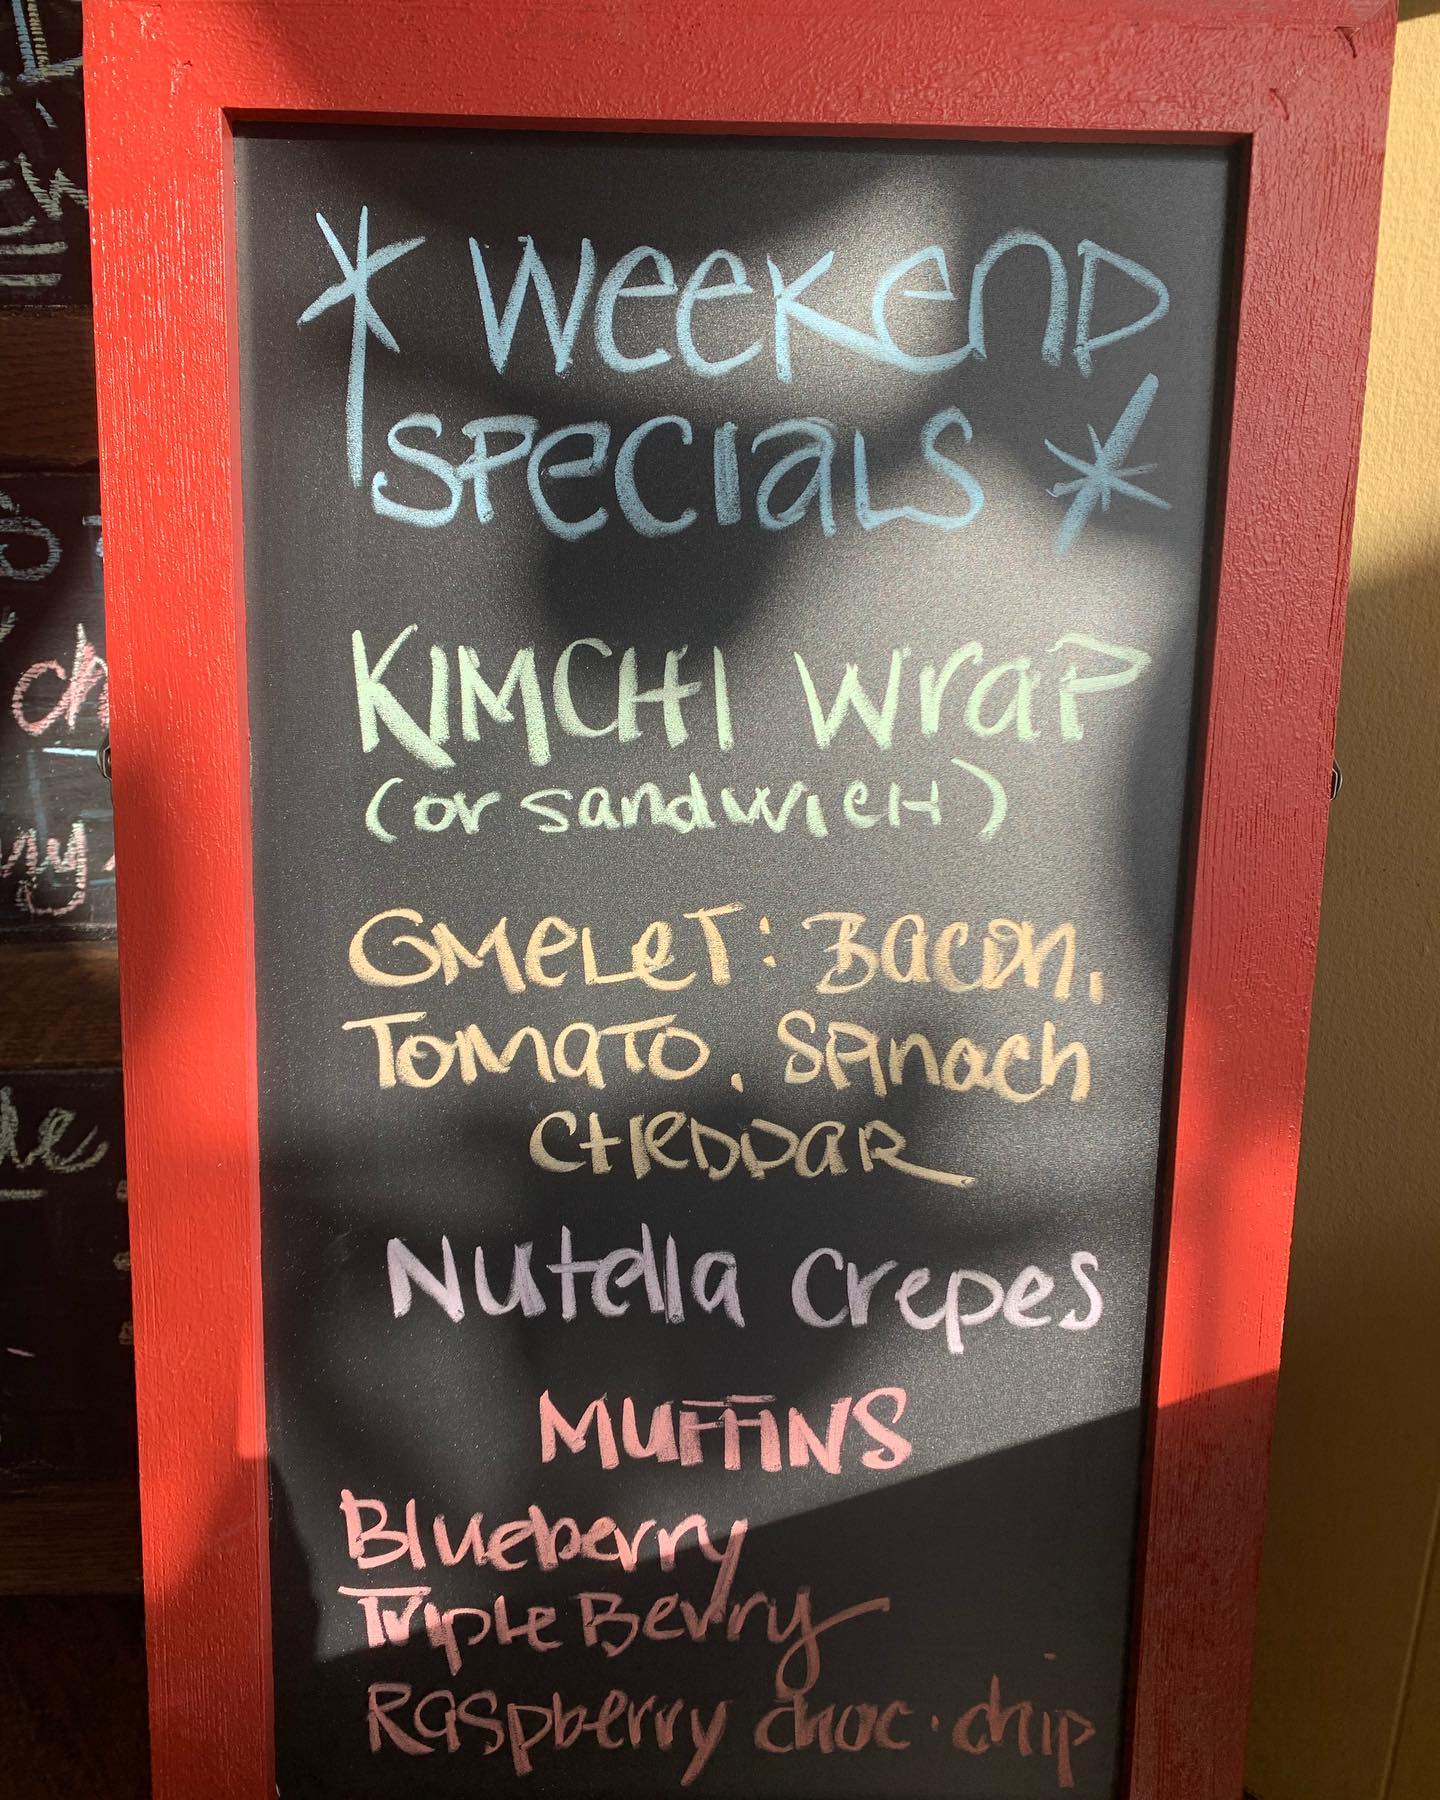 * Weekend
Specials *
KIMCHI Wrap
(or sandwich)
OMELET: Bacon,
Tomato, Spinach
CHEDDAR
Nutella Crepes
MUFFINS
Blueberry
Triple Berry
Raspberry choc. chip